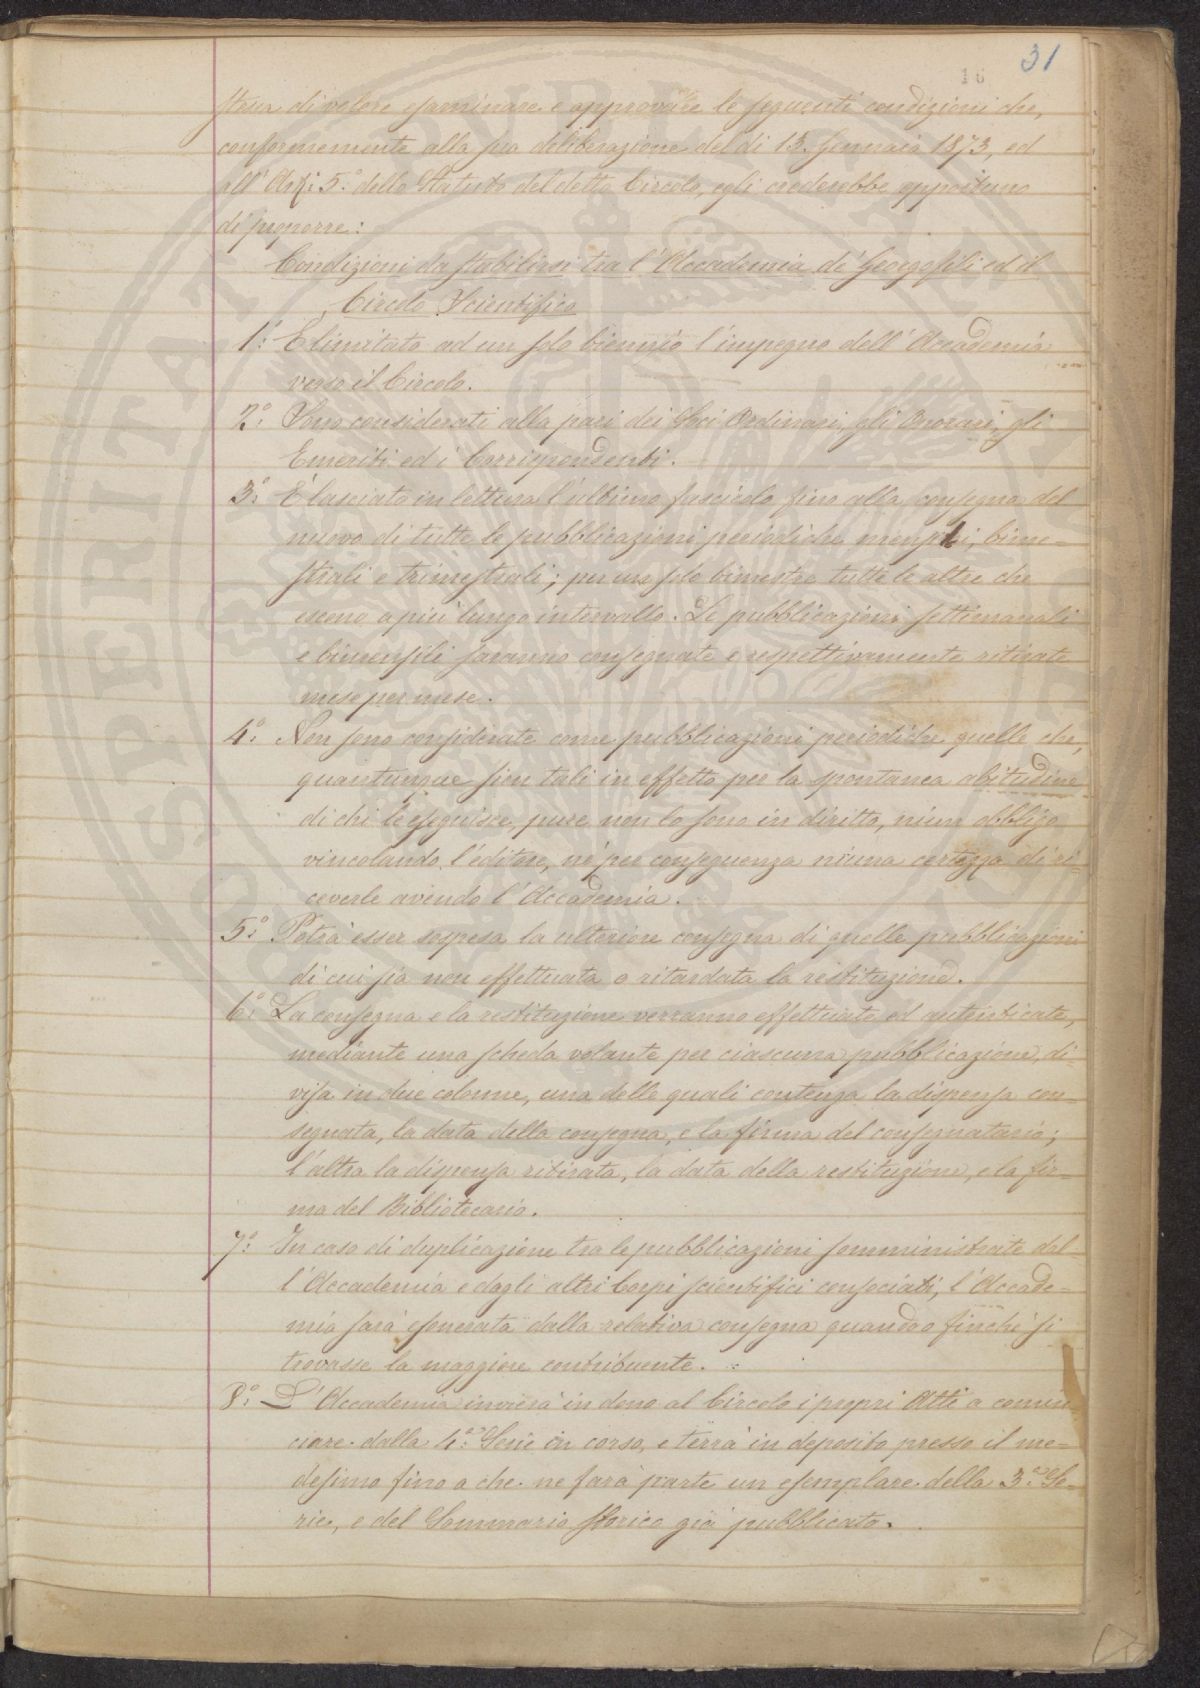 31
16
strua di volere esaminare e approvare le seguenti condizioni che,
conformemente alla sua deliberazione del dì 15. Gennaio 1873, ed
all'Art: 5.° dello Statuto del detto Circolo, egli crederebbe opportuno
di proporre:
Condizioni da stabilirsi tra l'Accademia de' Georgofili ed il
Circolo Scientifico
1.° È limitato ad un solo biennio l'impegno dell'Accademia
verso il Circolo.
2.° Sono considerati alla pari dei Soci Ordinari, gli Onorari, gli
Emeriti ed i Corrispondenti.
3.° È lasciato in lettura l'ultimo fascicolo fino alla consegna del
nuovo di tutte le pubblicazioni periodiche mensili, bime-
strali e trimestrali; per un solo bimestre tutte le altre che
escono a più lungo intervallo. Le pubblicazioni settimanali
e bimensili saranno consegnate e respettivamente ritirate
mese per mese.
4.° Non sono considerate come pubblicazioni periodiche quelle che,
quantunque sien tali in effetto per la spontanea abitudine
di chi le eseguisce, pure non lo sono in diritto, niun obbligo
vincolando l'editore, nè per conseguenza niuna certezza di ri-
ceverle avendo l'Accademia.
5.° Potrà esser sospesa la ulteriore consegna di quelle pubblicazioni
di cui sia non effettuata o ritardata la restituzione.
6.° La consegna e la restituzione verranno effettuate ed autenticate,
mediante una scheda volante per ciascuna pubblicazione, di-
visa in due colonne, una delle quali contenga la dispensa con-
segnata, la data della consegna, e la firma del consegnatario;
l'altra la dispensa ritirata, la data della restituzione, e la fir-
ma del Bibliotecario.
7.° In caso di duplicazione tra le pubblicazioni somministrate dal-
l'Accademia e dagli altri Corpi scientifici consociati, l'Accade-
mia sarà esonerata dalla relativa consegna quando o finchè si
trovasse la maggiore contribuente.
8.° L'Accademia invierà in dono al Circolo i propri Atti a comin
ciare dalla 4.ª Serie in corso, e terrà in deposito presso il me-
desimo fino a che ne farà parte un esemplare della 3.ª Se-
rie, e del Sommario storico già pubblicato.
PROSPERITATI PUBLICAE AUGENDAE